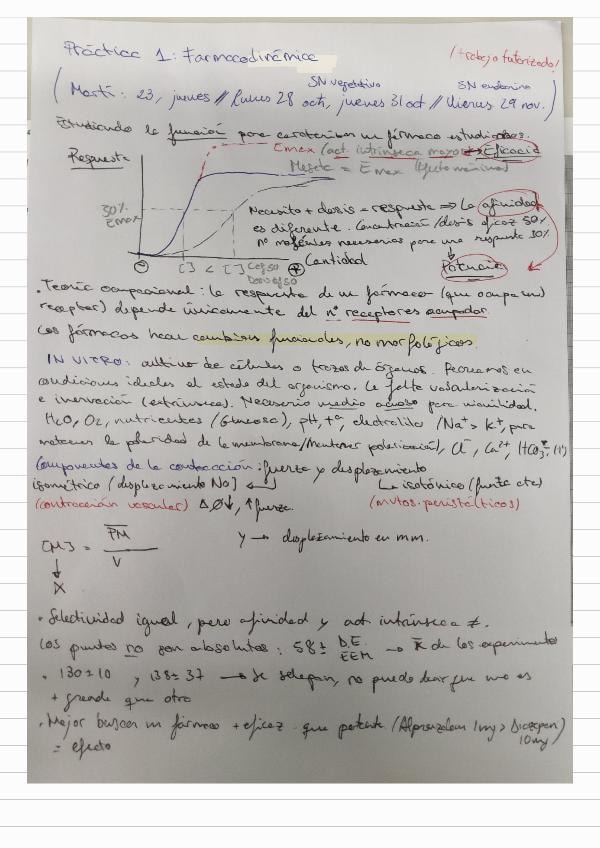 Práctica 1: Farmacodinámica
/trabajo tutorizado/
SN vegetativo SN endocrino
(Martí: 23, jueves // lunes 28 oct, jueves 31 oct // viernes 29 nov.)
Estudiando la función para caracterizar un fármaco estudiamos.
Emax (act intrínseca mayor) Eficacia
Respuesta
Meseta = Emax (Efecto máximo)
50% Emax
Necesito + dosis = respuesta => La afinidad
es diferente. Concentración/dosis eficaz 50%
nº moléculas necesarias para una respuesta 50%
Potencia
[ ] < [ ] Cefi50 Dosis ef50
Cantidad
. Teoría ocupacional: la respuesta de un fármaco (que ocupa un
receptor) depende únicamente del nº receptores ocupados.
Los fármacos hacen cambios funcionales, no morfológicos
IN VITRO: cultivo de células o trozos de órganos. Recreamos en
condiciones ideales el estado del organismo. Le falta vascularización
e inervación (extrínseca). Necesario medio acuoso para viabilidad.
H2O, O2, nutrientes (Glucosa), pH, tª, electrolitos /Na+ > K+, para
mantener la polaridad de la membrana/Mantener polarización), Cl-, Ca2+, HCO3-
Componentes de la contracción: fuerza y desplazamiento
isométrico (desplazamiento No) isotónico (fuerza cte)
(contracción vascular) Δ Ø↓, ↑fuerza. (mvtos. peristálticos)
[M] = PM / V y → desplazamiento en mm.
↓
X
. Selectividad igual, pero afinidad y act. intrínseca ≠.
Los puntos no son absolutos: 58 ± D.E. EEM → x̄ de los experimentos
. 130 ± 10 y 138 ± 37 → Se solapan, no puedo decir que uno es
+ grande que otro
. Mejor buscar un fármaco + eficaz que potente (Alprazolam 1mg > Diazepam 10mg)
= efecto